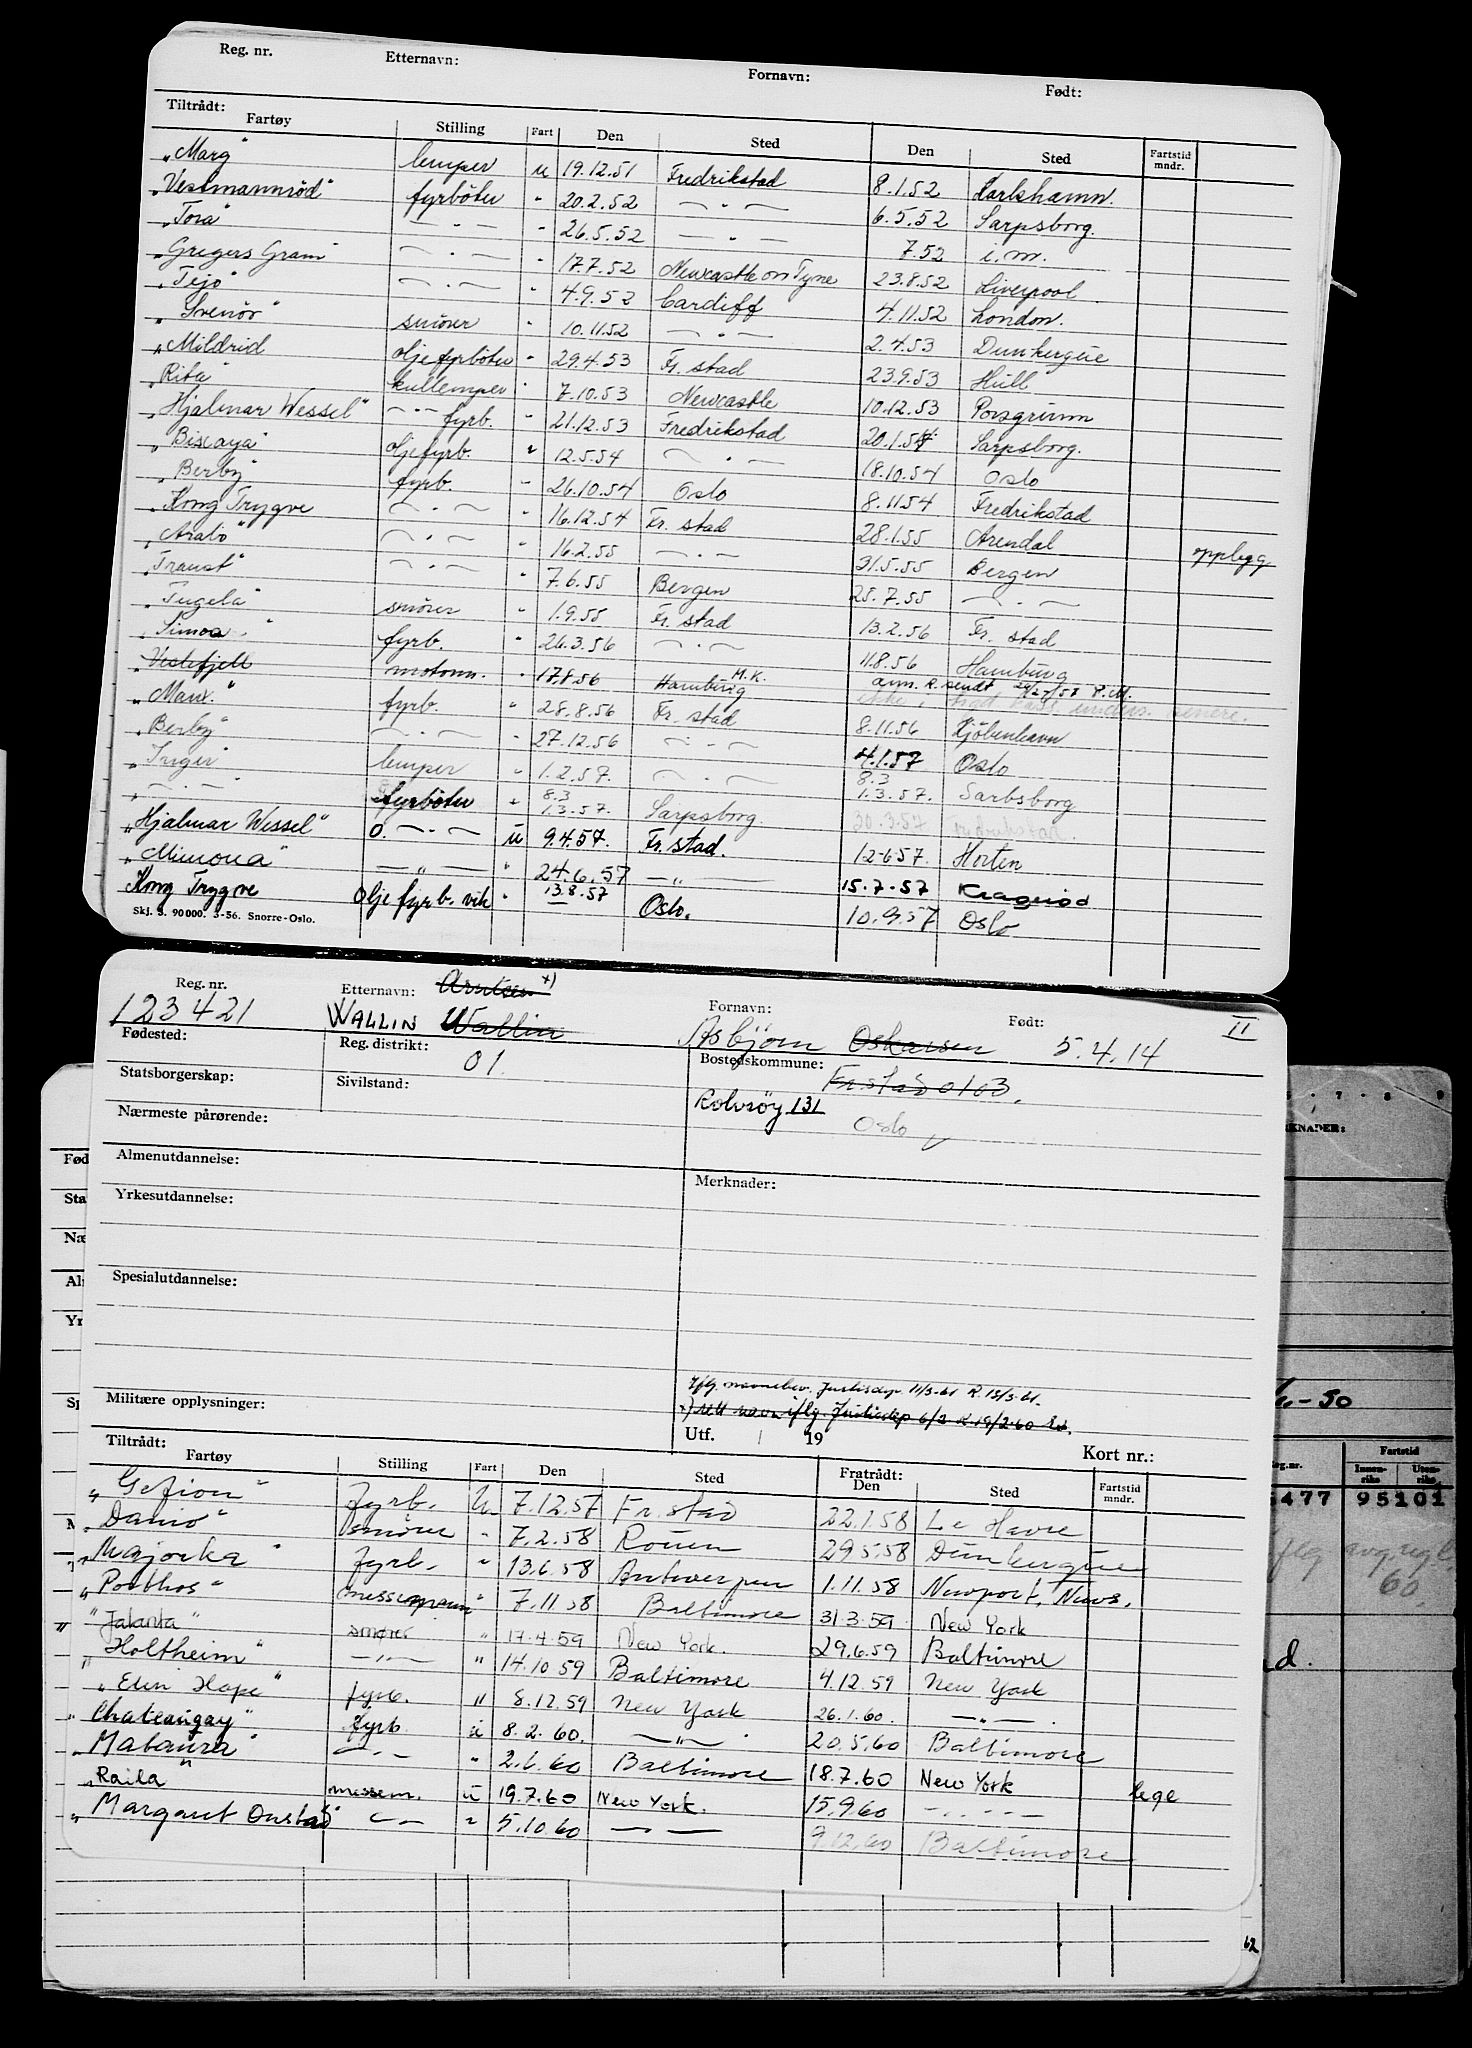 Reg. nr. Etternavn: Fornavn: Født:
Tiltrådt:
Fartøy Stilling Fart Den Sted Den Sted Fartstid mndr.
"Marg" lemper u 19.12.51 Fredrikstad 8.1.52 Karlshamn.
"Vestmannrød" fyrböter " 20.2.52 — " — 6.5.52 Sarpsborg.
"Tora" — " — " 26.5.52 — " — 7.52 i.m.
"Gregers Gram" — " — " 17.7.52 Newcastle on Tyne 23.8.52 Liverpool
"Tejo" — " — " 4.9.52 Cardiff 4.11.52 London.
"Svenör" smörer " 10.11.52 — " — 2.4.53 Dunkerque
"Mildrid oljefyrböter " 29.4.53 Fr. stad 23.9.53 Hull
"Rita" kullemper " 7.10.53 Newcastle 10.12.53 Porsgrunn
"Hjalmar Wessel" — " — fyrb. " 21.12.53 Fredrikstad 20.1.54 Sarpsborg.
"Biscaya" oljefyrb. " 12.5.54 — " — 18.10.54 Oslo
"Berby" fyrb. " 26.10.54 Oslo 8.11.54 Fredrikstad
"Kong Trygve — " — " 16.12.54 Fr. stad 28.1.55 Arendal opplegg
"Arabo" — " — " 16.2.55 — " — 31.5.55 Bergen
"Traust" — " — " 7.6.55 Bergen 25.7.55 — " —
"Tugela" smörer " 1.9.55 Fr. stad 13.2.56 Fr. stad
"Simoa" fyrb. " 26.3.56 — " — 11.8.56 Hamburg
"Vestefjell motorm. " 17.8.56 Hamburg M.K. ann. R. sendt
"Manx." fyrb. " 28.8.56 Fr. stad 8.11.56 Kjöbenhavn
"Berby" — " — " 27.12.56 — " — 4.1.57 Oslo
"Inger" lemper " 1.2.57. — " — 8.3 1.3.57. Sarbsborg
" — " — fyrböter " 8.3 1.3.57. Sarpsborg. 20.3.57 Fredrikstad.
"Hjalmar Wessel" O. — " — u 9.4.57. Fr. stad. 12-6 57. Horten
"Mimona" — " — " 24.6.57 — " — 15.7-57 Kragerød
Kong Trygve Olje fyrb. vik " 13.8.57 Oslo. 10.9.57 Oslo
Skj. S. 90000. 3-56. Snorre-Oslo.
Reg. nr. Etternavn: Arntsen x) Fornavn: Født: II
123421 WALLIN Wallin Asbjörn Oskarsen 5.4.14
Fødested: Reg. distrikt: 01. Bostedskommune: Fr.stad 0103.
Statsborgerskap: Sivilstand: Rolvsöy 131
Nærmeste pårørende: Oslo
Almenutdannelse:
Yrkesutdannelse: Merknader:
Spesialutdannelse:
Iflg. navnebev. Justisdep. 11/3-61 R. 15/3-61.
Militære opplysninger: x) rett navn iflg. Justisdep 6/2 R. 19/2-60
Utf. / 19 Kort nr.:
Tiltrådt: Fratrådt:
Fartøy Stilling Fart Den Sted Den Sted Fartstid mndr.
"Gefion" fyrb. U. 7.12.57 Fr. stad 22.1.58 Le Havre
"Danio" smörer " 7.2.58 Rouen 29.5.58 Dunkerque
"Majorka" fyrb. " 13.6.58 Antwerpen 1.11.58 Newport, News.
"Porthos" messemann " 7.11 58 Baltimore 31.3.59 New York
"Jalanta" smører " 17.4.59 New York. 29.6.59 Baltimore
"Holtheim" — " — " 14.10 59 Baltimore 4.12.59 New York
"Elin Hope" fyrb. " 8.12.59 New York 26.1.60. — " — .
"Chateaugay" fyrb u 8.2.60. — " — . 20.5.60 Baltimore
"Mataura" — " — " 2.6.60 Baltimore 18.7.60 New York
"Raila" messem. u 19.7.60 New York. 15.9.60 — " — lege
"Margaret Onstad" — " — " 5.10.60 — — 9.12.60 Baltimore
Fød
Sta
Næ
Al
Yr
6 - 7 - 8 9
RKNADER:
6-50
Fartstid
Reg.nr. Innenriks Utenriks
477 95101
iflg avg.regl.
60.
62